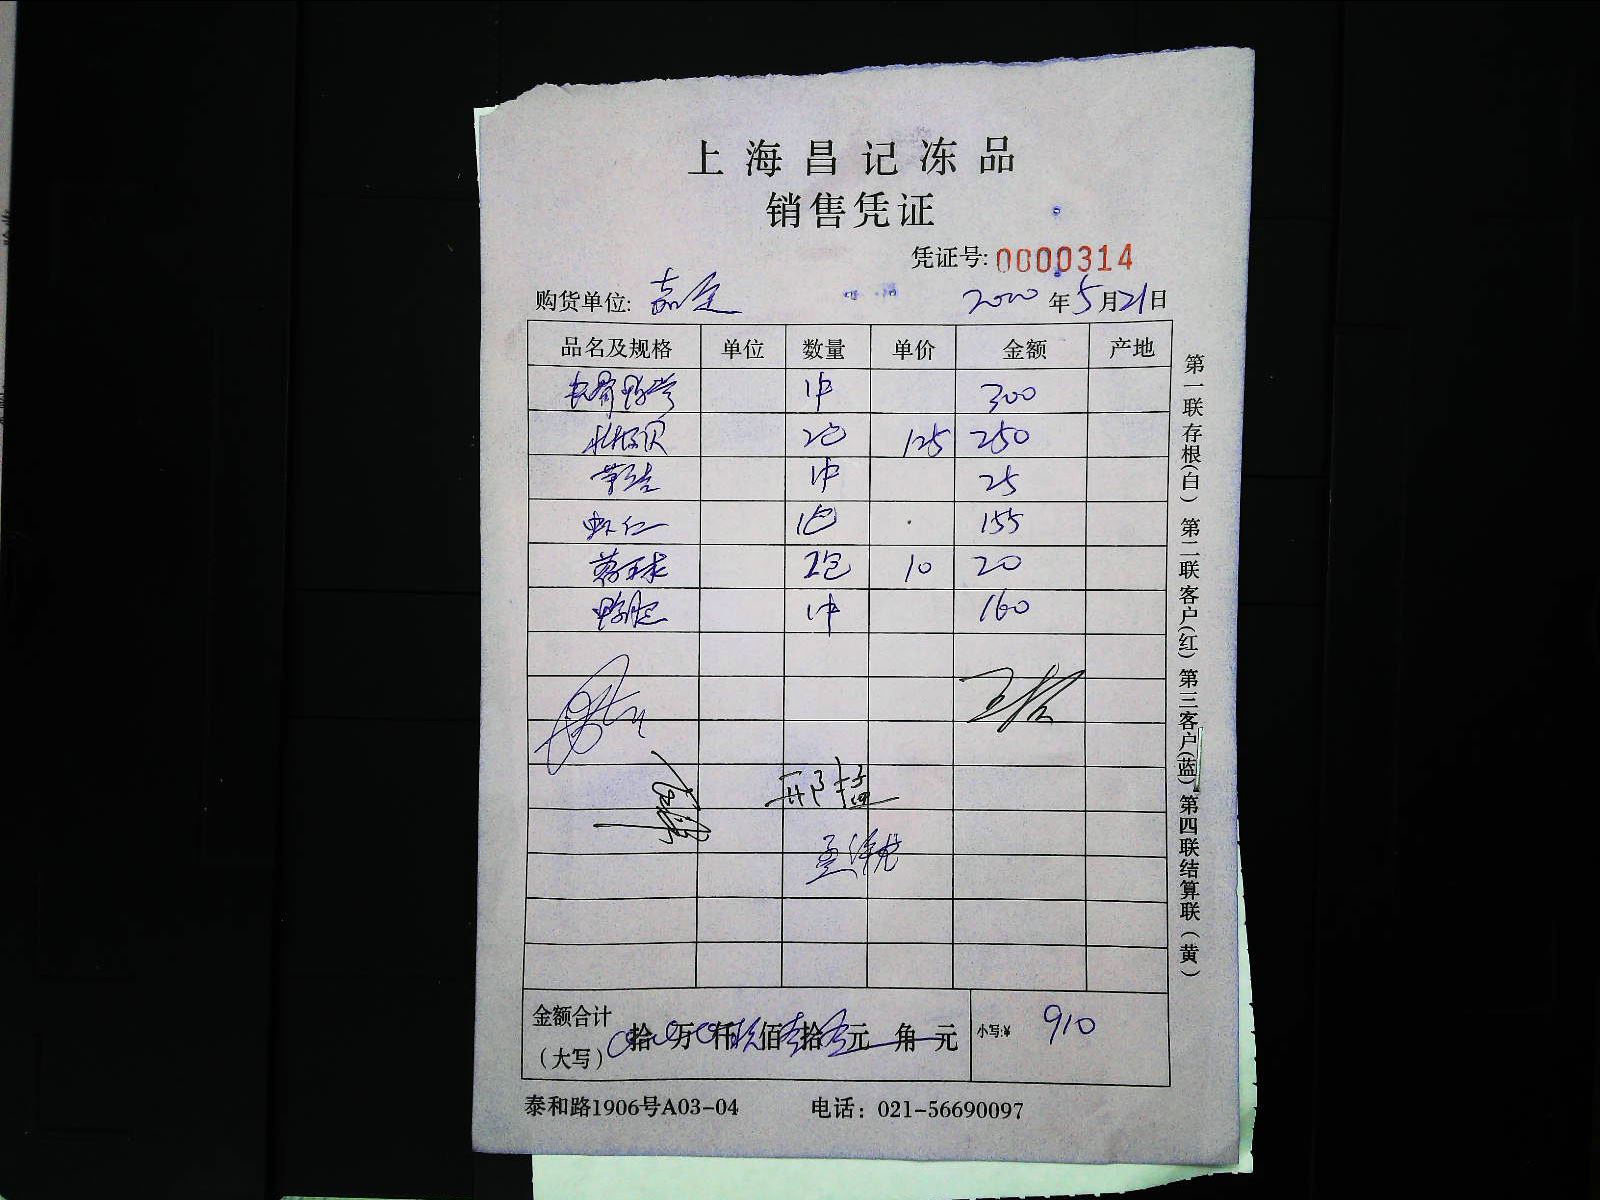 上海昌记冻品
销售凭证
凭证号: 0000314
购货单位: 嘉定 2020年5月21日
品名及规格 单位 数量 单价 金额 产地
1件 300
贝 2包 125 250
1件 25
虾仁 1包 155
2包 10 20
鸭肫 1件 160
邢
孟
金额合计(大写) 拾 万 仟 玖佰 壹拾 元 角 元 小写:¥ 910
泰和路1906号A03-04 电话: 021-56690097
第一联存根(白) 第二联客户(红) 第三客户(蓝) 第四联结算联(黄)